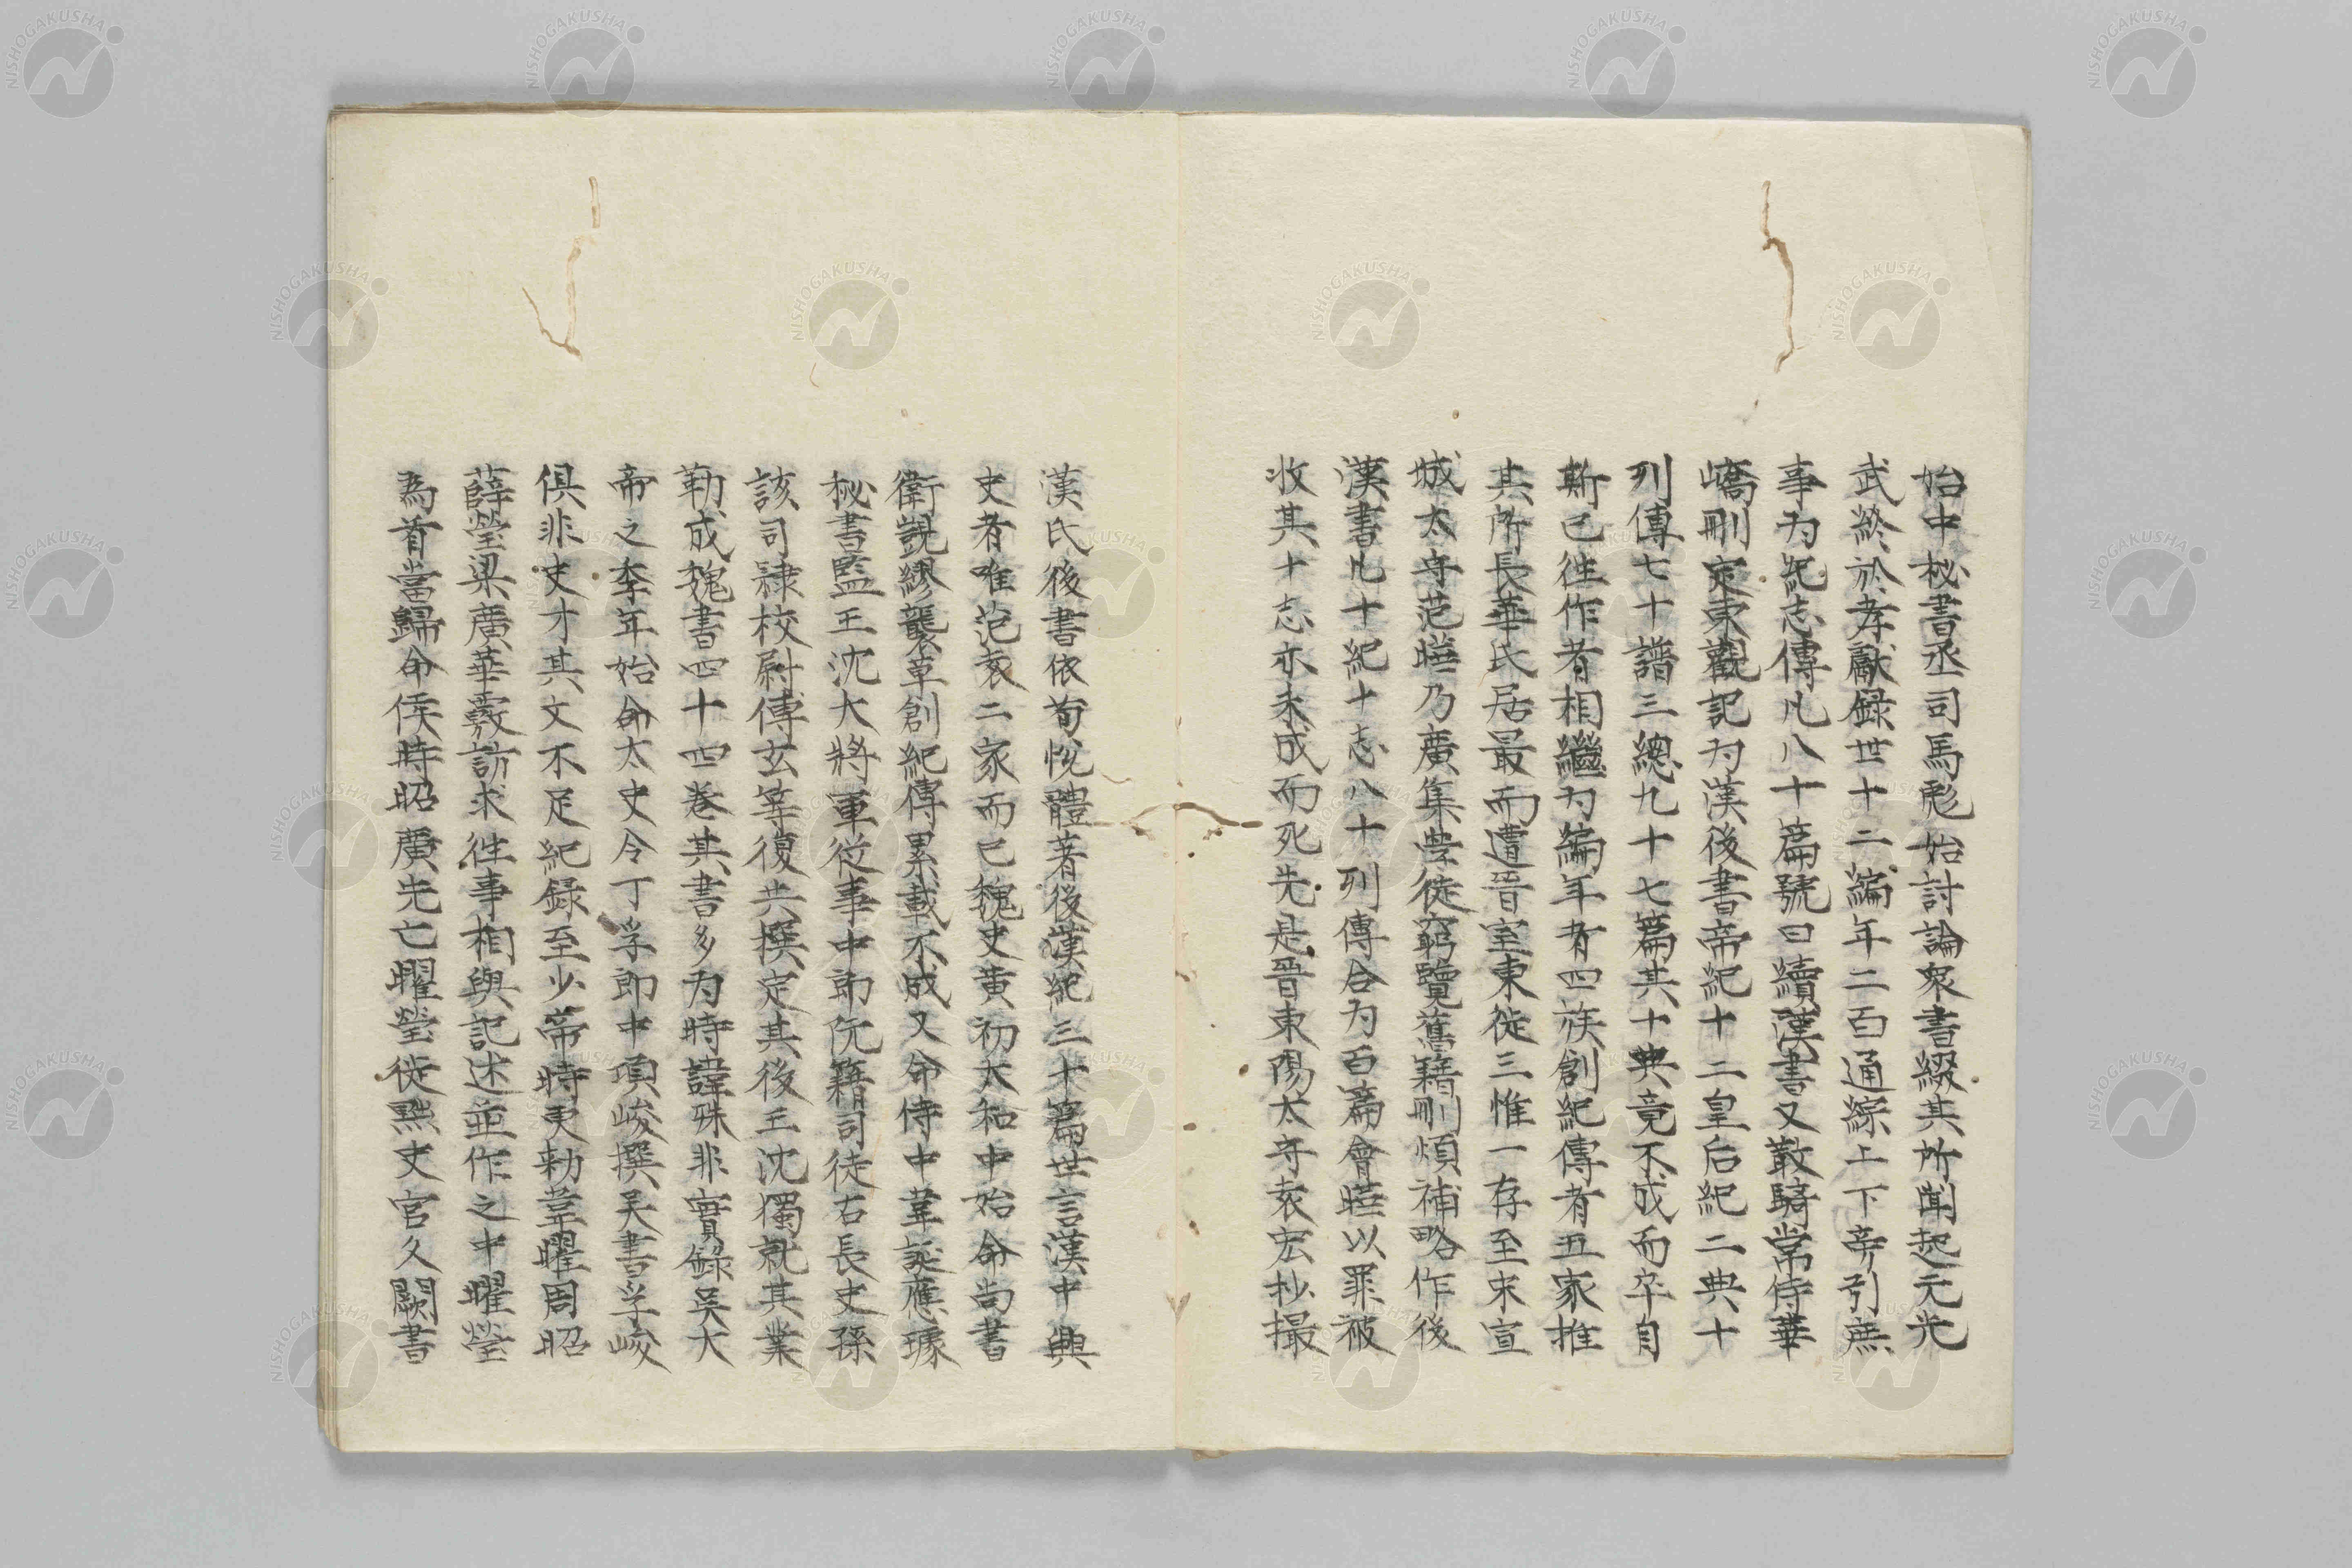 始中秘書丞司馬彪始討論衆書綴其所聞起元光
武終於孝獻錄世十二編年二百通綜上下旁引庶
事为紀志傳凡八十篇號曰續漢書又散騎常侍華
嶠刪定東觀記为漢後書帝紀十二皇后紀二典十
列傳七十譜三總九十七篇其十典竟不成而卒自
斯已往作者相繼为編年者四族創紀傳者五家推
其所長華氏居最而遭晉室東徙三惟一存至宋宣
城太守范曄乃廣集學徒窮覽舊籍刪煩補略作後
漢書凡十紀十志八十列傳合为百篇會曄以罪被
收其十志亦未成而死先是晉東陽太守袁宏抄撮
漢氏後書依荀悅體著後漢紀三十篇世言漢中興
史者唯范袁二家而已魏史黃初太和中始命尚書
衛覬繆襲草創紀傳累載不成又命侍中韋誕應璩
秘書監王沈大將軍從事中郎阮籍司徒右長史孫
該司隸校尉傅玄等復共撰定其後王沈獨就其業
勒成魏書四十四卷其書多为時諱殊非實錄吳大
帝之季年始命太史令丁孚郎中項峻撰吳書孚峻
俱非史才其文不足紀錄至少帝時更勑韋曜周昭
薛瑩梁廣華覈訪求往事相與記述並作之中曜瑩
為首當歸命侯時昭廣先亡曜瑩徙黜史官久闕書
NISHOGAKUSHA